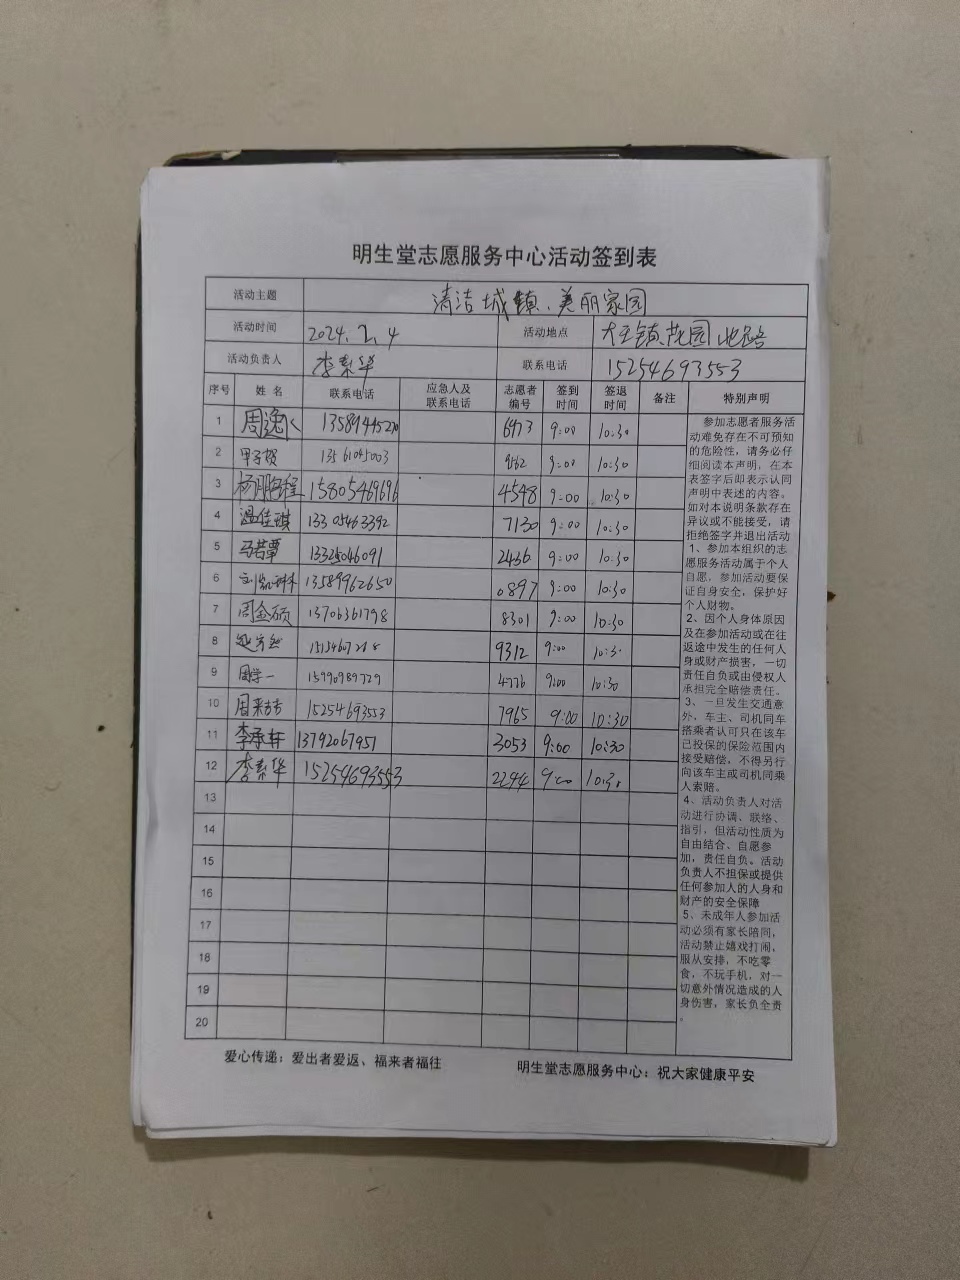 明生堂志愿服务中心活动签到表
活动主题 清洁城镇、美丽家园
活动时间 2024.2.4 活动地点 大王镇花园北路
活动负责人 李素华 联系电话 15254693553
序号 姓名 联系电话 应急人及联系电话 志愿者编号 签到时间 签退时间 备注 特别声明
1 周逸 13589445270 6973 9:00 10:30
2 13561045003 9162 9:00 10:30
3 杨鹏程 15805469696 4548 9:00 10:30
4 温佳琪 13305463392 7130 9:00 10:30
5 马若覃 13325046091 2436 9:00 10:30
6 13589962650 0897 9:00 10:30
7 周金硕 13706361798 8301 9:00 10:30
8 9312 9:00 10:30
9 周学一 15990989729 4776 9:00 10:30
10 周来吉 15254693553 7965 9:00 10:30
11 李承轩 13792067951 3053 9:00 10:30
12 李素华 15254693553 2294 9:00 10:30
13
14
15
16
17
18
19
20
参加志愿者服务活
动难免存在不可预知
的危险性，请务必仔
细阅读本声明，在本
表签字后即表示认同
声明中表述的内容。
如对本说明条款存在
异议或不能接受，请
拒绝签字并退出活动
1、参加本组织的志
愿服务活动属于个人
自愿，参加活动要保
证自身安全，保护好
个人财物。
2、因个人身体原因
及在参加活动或在往
返途中发生的任何人
身或财产损害，一切
责任自负或由侵权人
承担完全赔偿责任。
3、一旦发生交通意
外，车主、司机同车
搭乘者认可只在该车
已投保的保险范围内
接受赔偿，不得另行
向该车主或司机同乘
人索赔。
4、活动负责人对活
动进行协调、联络、
指引，但活动性质为
自由结合、自愿参
加，责任自负。活动
负责人不担保或提供
任何参加人的人身和
财产的安全保障
5、未成年人参加活
动必须有家长陪同，
活动禁止嬉戏打闹，
服从安排，不吃零
食，不玩手机，对一
切意外情况造成的人
身伤害，家长负全责
。
爱心传递：爱出者爱返、福来者福往 明生堂志愿服务中心：祝大家健康平安